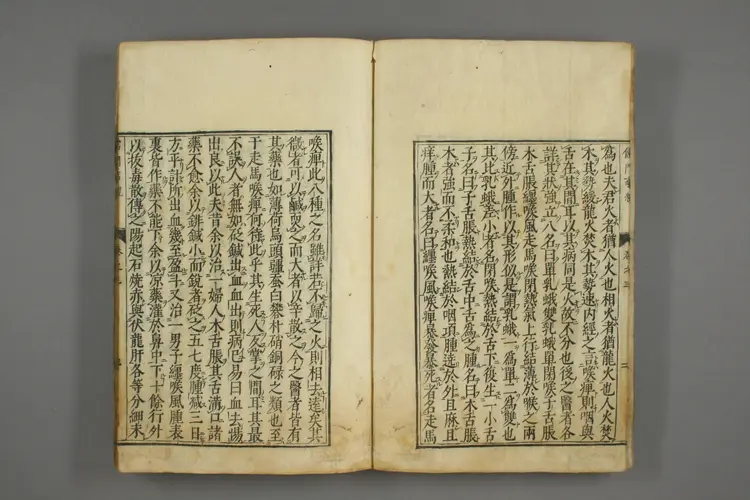 為也夫君火者猶人火也相火者猶龍火也人火焚
木其勢緩龍火焚木其勢速内經之言喉痺則咽與
舌在其間耳以其病同是火故不分也後之醫者各
詳其狀強立八名曰單乳蛾雙乳蛾單閉喉子舌脹
木舌脹纏喉風走馬喉閉熱氣上行結薄於喉之兩
傍近外腫作以其形似是謂乳蛾一為單二為雙也
其比乳蛾差小者名閉喉熱結於舌下復生一小舌
子名曰子舌脹熱結於舌中舌為之腫名曰木舌脹
木者強而不柔和也熱結於咽項腫遶於外且麻且
痒腫而大者名曰纏喉風喉痺暴發暴死者名走馬
喉痺此八種之名雖詳若不歸之火則相去遠矣其
微者可以鹹耎之而大者以辛散之今之醫者皆有
其藥也如薄荷烏頭殭蚕白礬朴硝銅碌之類也至
于走馬喉痺何待此乎其生死人反掌之間耳其最
不誤人者無如砭鍼出血血出則病已易曰血去惕
出良以此夫昔余以治一婦人木舌脹其舌滿口諸
藥不愈余以錍鍼小而銳者砭之五七度腫減三日
方平計所出血幾至盈斗又治一男子纏喉風腫表
裏皆作藥不能下余以凉藥灌於鼻中下十餘行外
以拔毒散傅之陽起石燒赤與伏龍肝各等分細末